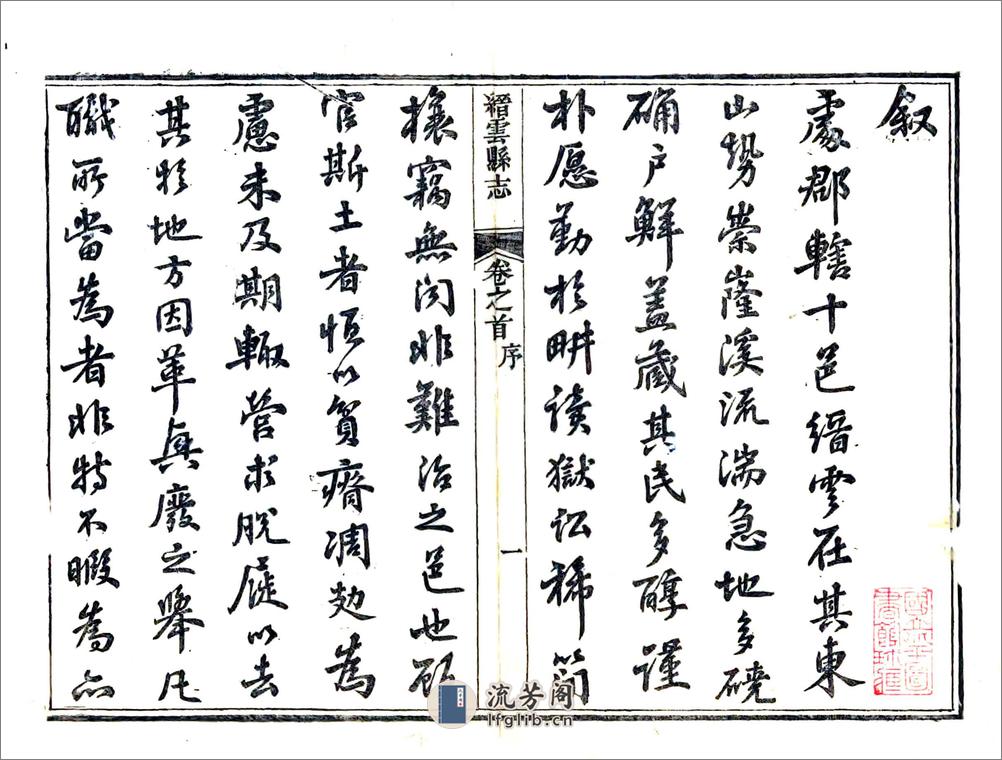 叙
處郡轄十邑縉雲在其東
山勢崇嶐溪流湍急地多磽
确户鮮蓋藏其民多醇謹
朴愿勤於畊讀獄訟稀簡
縉雲縣志
卷之首
序
一
攘竊無闻非難治之邑也顧
官斯土者恒以貧瘠凋劾為
慮未及期輙營求脫屣以去
其於地方因革興廢之舉凡
職所當為者非特不暇為亦
國立北平圖
書館珎藏
流芳阁
lfglib.cn